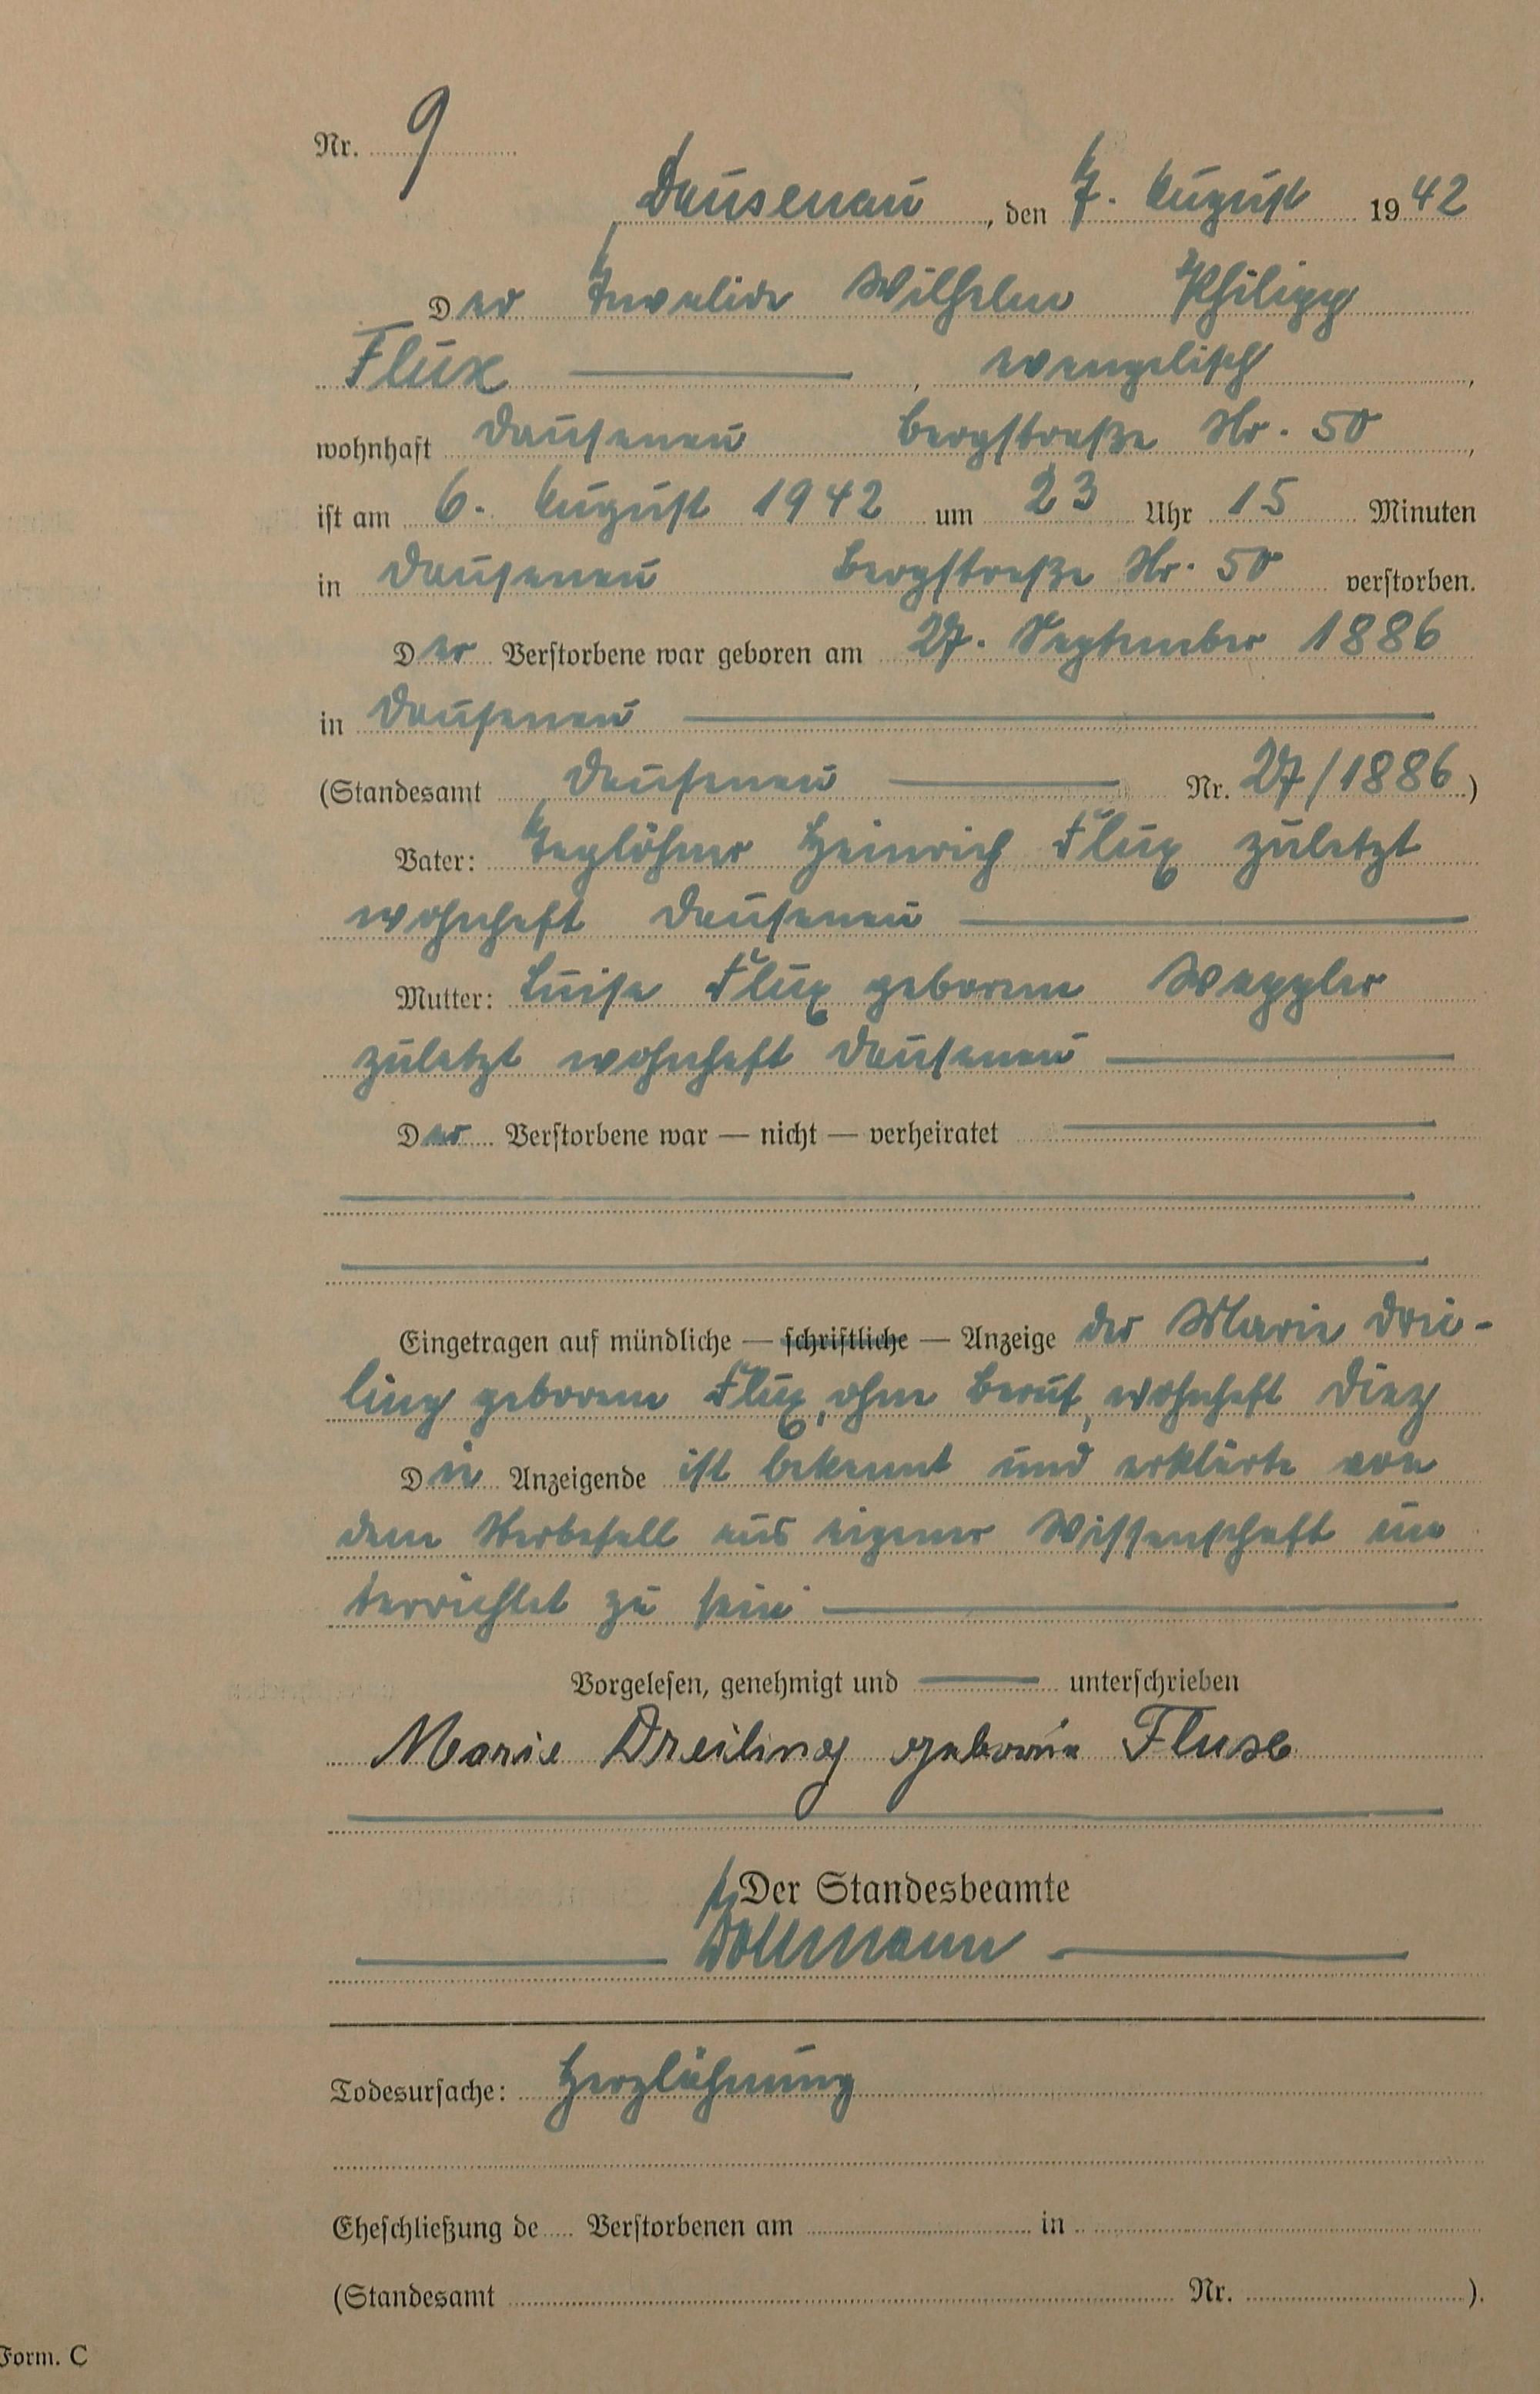 Nr. 9
Dausenau, den 7. August 1942
Der Invalide Wilhelm Philipp
Flux, evangelisch,
wohnhaft Dausenau Bergstraße Nr. 50,
ist am 6. August 1942 um 23 Uhr 15 Minuten
in Dausenau Bergstraße Nr. 50 verstorben.
Der Verstorbene war geboren am 27. September 1886
in Dausenau
(Standesamt Dausenau Nr. 27/1886)
Vater: Taglöhner Heinrich Flux zuletzt
wohnhaft Dausenau
Mutter: Luise Flux geborene Wappler
zuletzt wohnhaft Dausenau
Der Verstorbene war — nicht — verheiratet
Eingetragen auf mündliche — schriftliche — Anzeige der Marie Drei-
ling geborene Flux, ohne Beruf, wohnhaft Diez
Die Anzeigende ist bekannt und erklärte von
dem Sterbefall aus eigener Wissenschaft un
terrichtet zu sein
Vorgelesen, genehmigt und unterschrieben
Marie Dreiling geborene Flux
Der Standesbeamte
Todesursache: Herzlähmung
Eheschließung de Verstorbenen am in
(Standesamt Nr. ).
Form. C